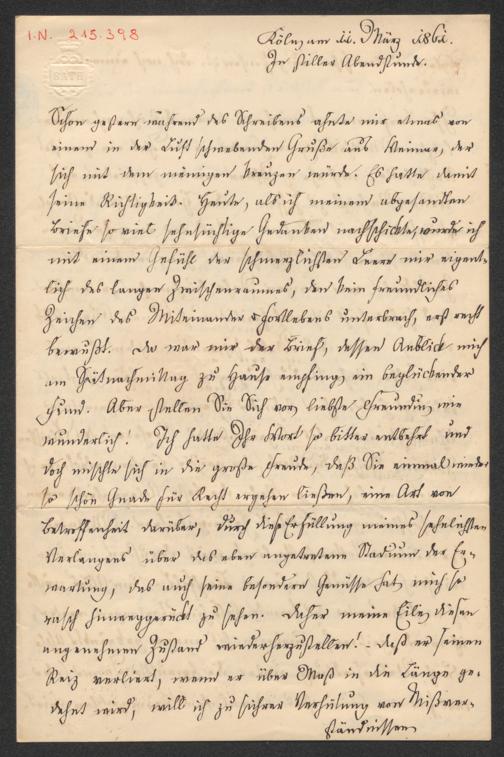 I.N. 215.398
BATH
Köln, am 11. März 1861.
In stiller Abendstunde.
Schon gestern während des Schreibens ahnte mir etwas von
einem in der Luft schwebenden Gruße aus Weimar, der
sich mit dem meinigen kreuzen würde. Es hatte damit
seine Richtigkeit. Heute, als ich meinem abgesandten
Briefe so viel sehnsüchtige Gedanken nachschickte, wurde ich
mit einem Gefühl der schmerzlichsten Leere mir eigent-
lich des langen Zwischenraumes, den kein freundliches
Zeichen des Miteinander-Fortlebens unterbrach, erst recht
bewußt. Da war mir der Brief, dessen Anblick mich
am Spätnachmittag zu Hause empfing, ein beglückender
Fund. Aber stellen Sie Sich vor, liebste Freundin, wie
wunderlich! Ich hatte Ihr Wort so bitter entbehrt und
doch mischte sich in die große Freude, daß Sie einmal wieder
so schön Gnade für Recht ergehen ließen, eine Art von
Betroffenheit darüber, durch diese Erfüllung meines sehnlichsten
Verlangens über das eben angetretene Stadium der Er-
wartung, das auch seine besondern Genüsse hat, mich so
rasch hinweggerückt zu sehen. Daher meine Eile, diesen
angenehmen Zustand wiederherzustellen! – daß er seinen
Reiz verliert, wenn er über Maß in die Länge ge-
dehnt wird, will ich zu sichrer Verhütung von Mißver-
ständnissen